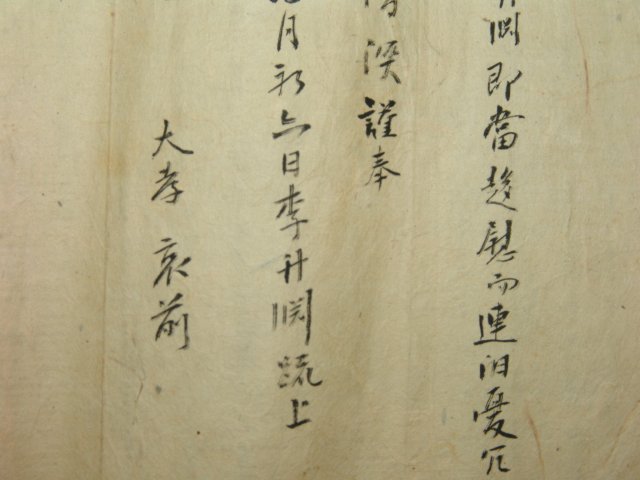 淵即當趍慰而連汩憂冗
深謹奉
月初六日李升淵疏上
大孝 哀前